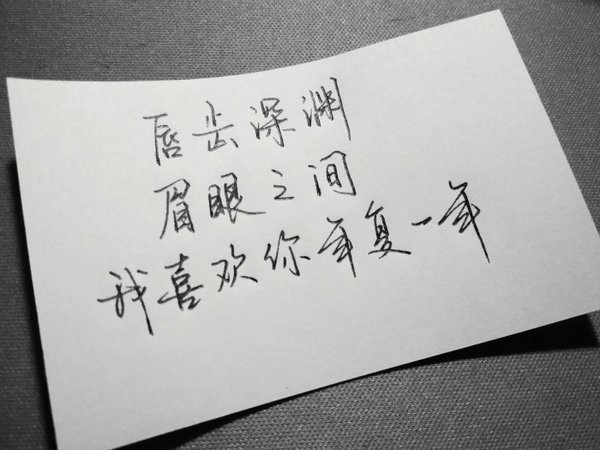 唇齿深渊
眉眼之间
我喜欢你年复一年